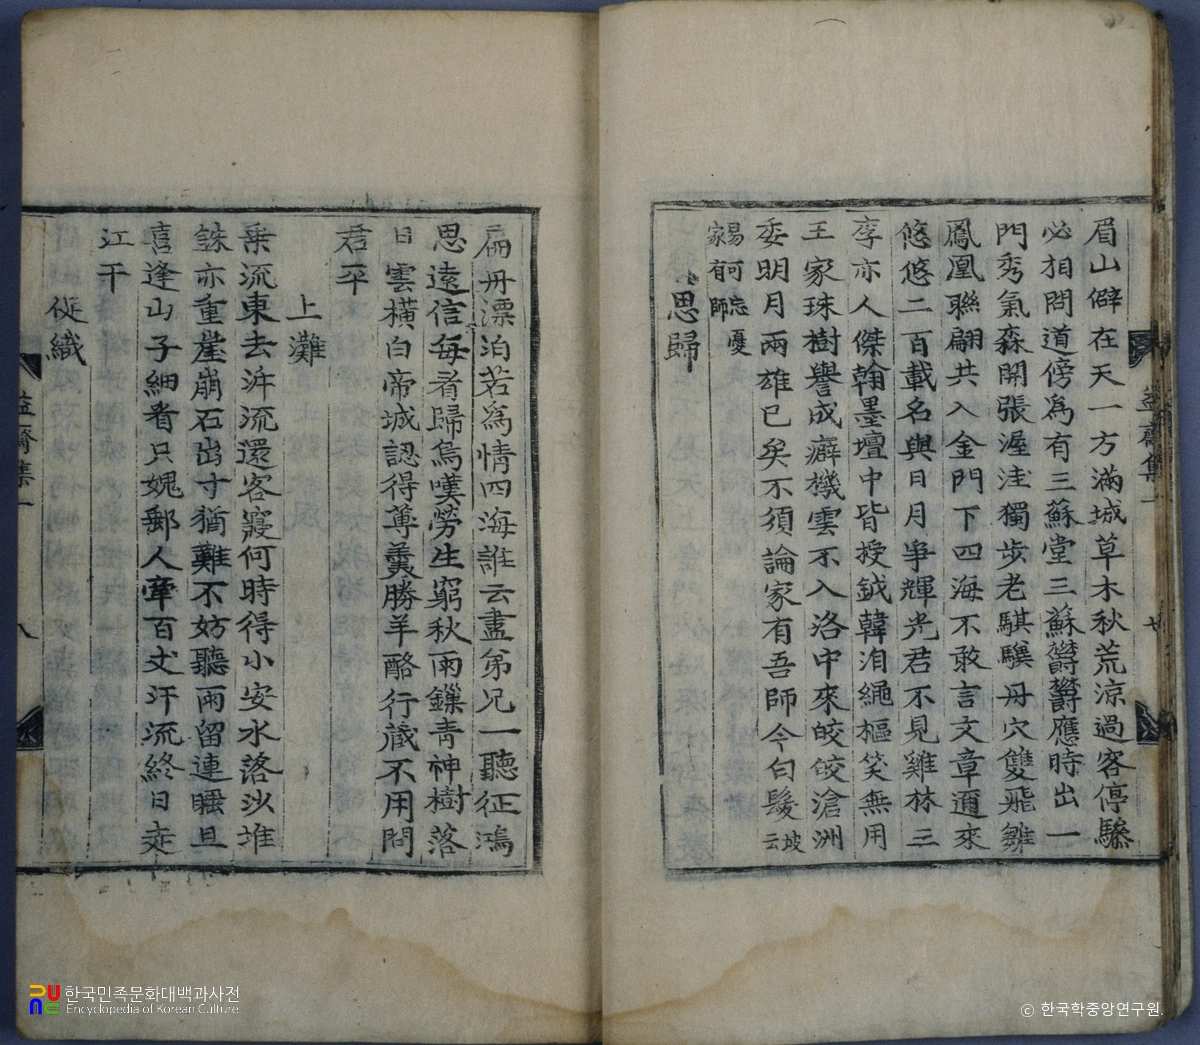 眉山僻在天一方滿城草木秋荒涼過客停驂
必相問道傍爲有三蘇堂三蘇欝欝應時出一
門秀氣森開張渥洼獨步老騏驥丹穴雙飛雛
鳳凰聯翩共入金門下四海不敢言文章邇來
悠悠二百載名與日月爭輝光君不見雞林三
李亦人傑翰墨壇中皆授鉞韓洎繩樞笑無用
王家珠樹譽成癖機雲不入洛中來皎皎滄洲
委明月兩雄已矣不須論家有吾師今白髮坡云
家有師
易可忘憂
思歸
扁舟漂泊若爲情四海誰云盡弟兄一聽征鴻
思遠信每看歸鳥嘆勞生窮秋雨鏁青神樹落
日雲橫白帝城認得蓴羹勝羊酪行藏不用問
君平
上灘
乗流東去泝流還客寢何時得小安水落沙堆
銖亦重崖崩石出寸猶難不妨聽雨留連睡且
喜逢山子細看只媿郵人牽百丈汗流終日走
江干
促織
益齋集一
八
한국민족문화대백과사전
Encyclopedia of Korean Culture
© 한국학중앙연구원.